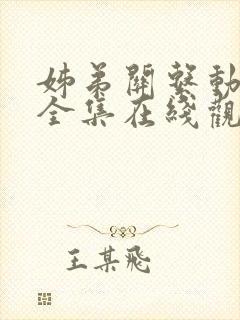 姊弟關繫動
全集在綫觀
王某飛